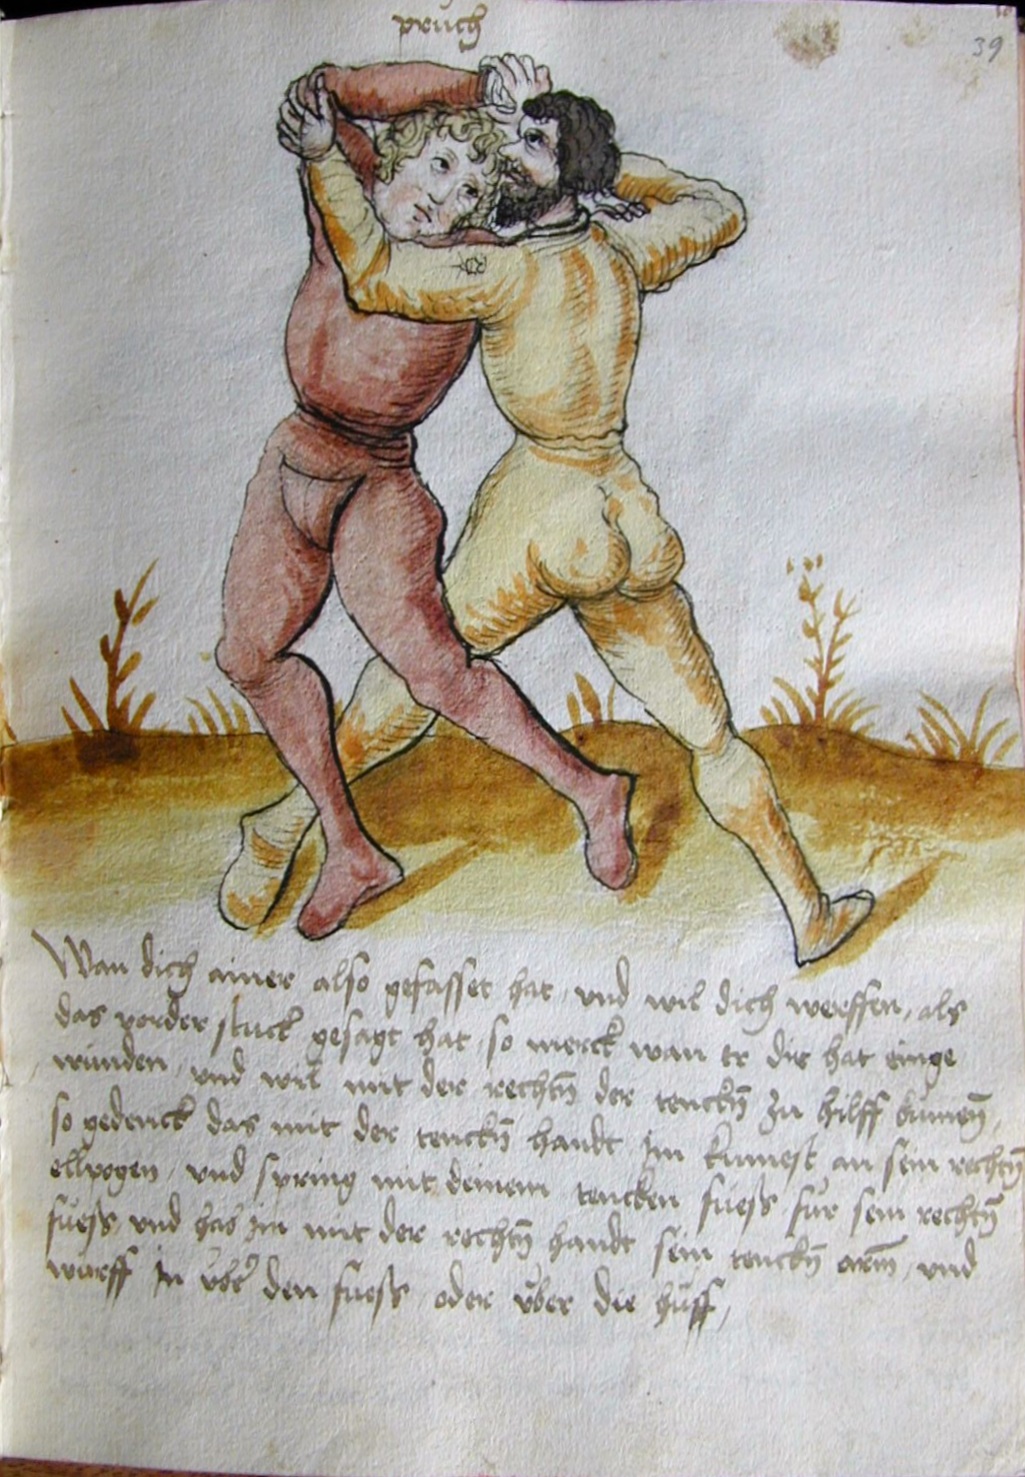 pruch
39
Wan dich ainer also gefasset hat, und wil dich werffen, als
das vorder stuck gesagt hat, so merck wan er dir hat einge
wunden, und wil mit der rechtn̄ der tenckn̄ zu hilff kumen̄,
so gedenck das mit der tenckn̄ handt im kumest an sein rechtn̄
ellpogen, und spring mit deinem tencken fuess fur sein rechtn̄
fuess, und has im mit der rechtn̄ handt sein tenckn̄ arm̄, und
wurff in vber den fuess, oder vber die huff,